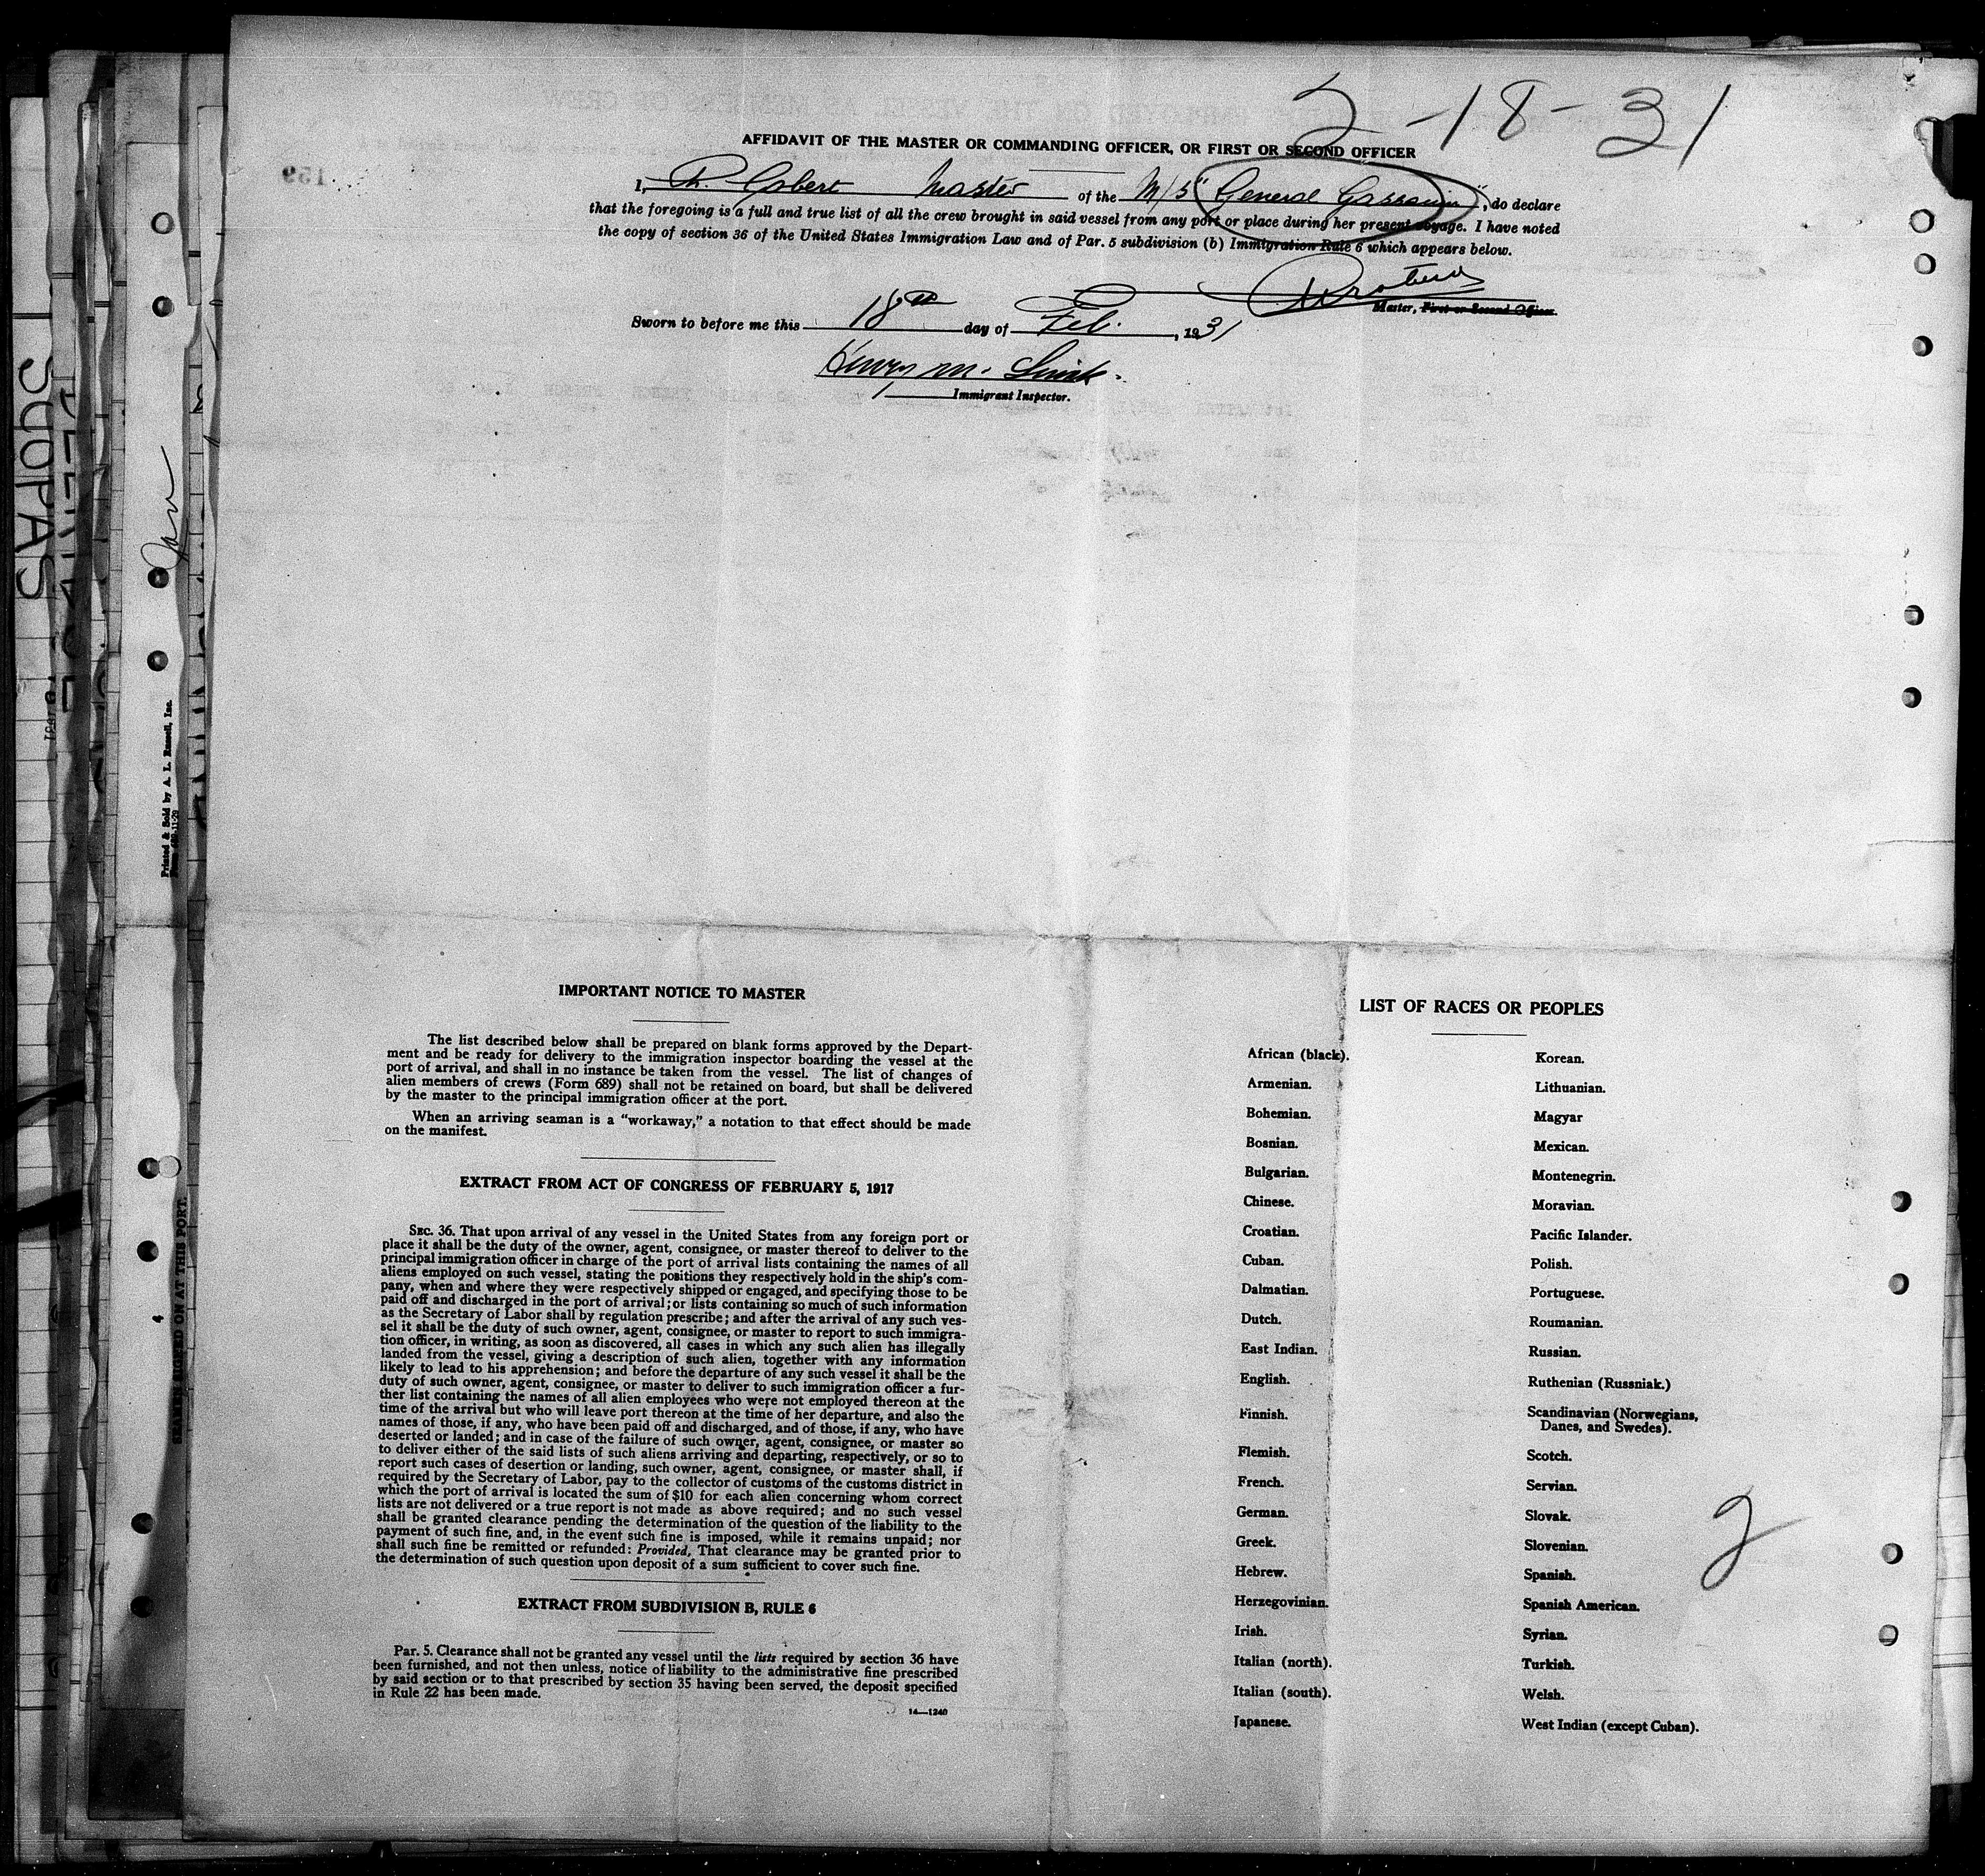 2-18-31
AFFIDAVIT OF THE MASTER OR COMMANDING OFFICER, OR FIRST OR SECOND OFFICER
I, Gobert Master of the M/S "General Gassouin", do declare
that the foregoing is a full and true list of all the crew brought in said vessel from any port or place during her present voyage. I have noted
the copy of section 36 of the United States Immigration Law and of Par. 5 subdivision (b) Immigration Rule 6 which appears below.
Master, First or Second Officer.
Sworn to before me this 18th day of Feb. , 1931
Henry M. Smith.
Immigrant Inspector.
159
SUOPAS
Jan
Printed & Sold by A. L. Russell, Inc.
SEAMEN SIGNED ON AT THIS PORT.
4
IMPORTANT NOTICE TO MASTER
The list described below shall be prepared on blank forms approved by the Depart-
ment and be ready for delivery to the immigration inspector boarding the vessel at the
port of arrival, and shall in no instance be taken from the vessel. The list of changes of
alien members of crews (Form 689) shall not be retained on board, but shall be delivered
by the master to the principal immigration officer at the port.
When an arriving seaman is a "workaway," a notation to that effect should be made
on the manifest.
EXTRACT FROM ACT OF CONGRESS OF FEBRUARY 5, 1917
SEC. 36. That upon arrival of any vessel in the United States from any foreign port or
place it shall be the duty of the owner, agent, consignee, or master thereof to deliver to the
principal immigration officer in charge of the port of arrival lists containing the names of all
aliens employed on such vessel, stating the positions they respectively hold in the ship's com-
pany, when and where they were respectively shipped or engaged, and specifying those to be
paid off and discharged in the port of arrival; or lists containing so much of such information
as the Secretary of Labor shall by regulation prescribe; and after the arrival of any such ves-
sel it shall be the duty of such owner, agent, consignee, or master to report to such immigra-
tion officer, in writing, as soon as discovered, all cases in which any such alien has illegally
landed from the vessel, giving a description of such alien, together with any information
likely to lead to his apprehension; and before the departure of any such vessel it shall be the
duty of such owner, agent, consignee, or master to deliver to such immigration officer a fur-
ther list containing the names of all alien employees who were not employed thereon at the
time of the arrival but who will leave port thereon at the time of her departure, and also the
names of those, if any, who have been paid off and discharged, and of those, if any, who have
deserted or landed; and in case of the failure of such owner, agent, consignee, or master so
to deliver either of the said lists of such aliens arriving and departing, respectively, or so to
report such cases of desertion or landing, such owner, agent, consignee, or master shall, if
required by the Secretary of Labor, pay to the collector of customs of the customs district in
which the port of arrival is located the sum of $10 for each alien concerning whom correct
lists are not delivered or a true report is not made as above required; and no such vessel
shall be granted clearance pending the determination of the question of the liability to the
payment of such fine, and, in the event such fine is imposed, while it remains unpaid; nor
shall such fine be remitted or refunded: Provided, That clearance may be granted prior to
the determination of such question upon deposit of a sum sufficient to cover such fine.
EXTRACT FROM SUBDIVISION B, RULE 6
Par. 5. Clearance shall not be granted any vessel until the lists required by section 36 have
been furnished, and not then unless, notice of liability to the administrative fine prescribed
by said section or to that prescribed by section 35 having been served, the deposit specified
in Rule 22 has been made.
14—1240
LIST OF RACES OR PEOPLES
African (black).
Armenian.
Bohemian.
Bosnian.
Bulgarian.
Chinese.
Croatian.
Cuban.
Dalmatian.
Dutch.
East Indian.
English.
Finnish.
Flemish.
French.
German.
Greek.
Hebrew.
Herzegovinian.
Irish.
Italian (north).
Italian (south).
Japanese.
Korean.
Lithuanian.
Magyar
Mexican.
Montenegrin.
Moravian.
Pacific Islander.
Polish.
Portuguese.
Roumanian.
Russian.
Ruthenian (Russniak.)
Scandinavian (Norwegians,
Danes, and Swedes).
Scotch.
Servian.
Slovak.
Slovenian.
Spanish.
Spanish American.
Syrian.
Turkish.
Welsh.
West Indian (except Cuban).
2